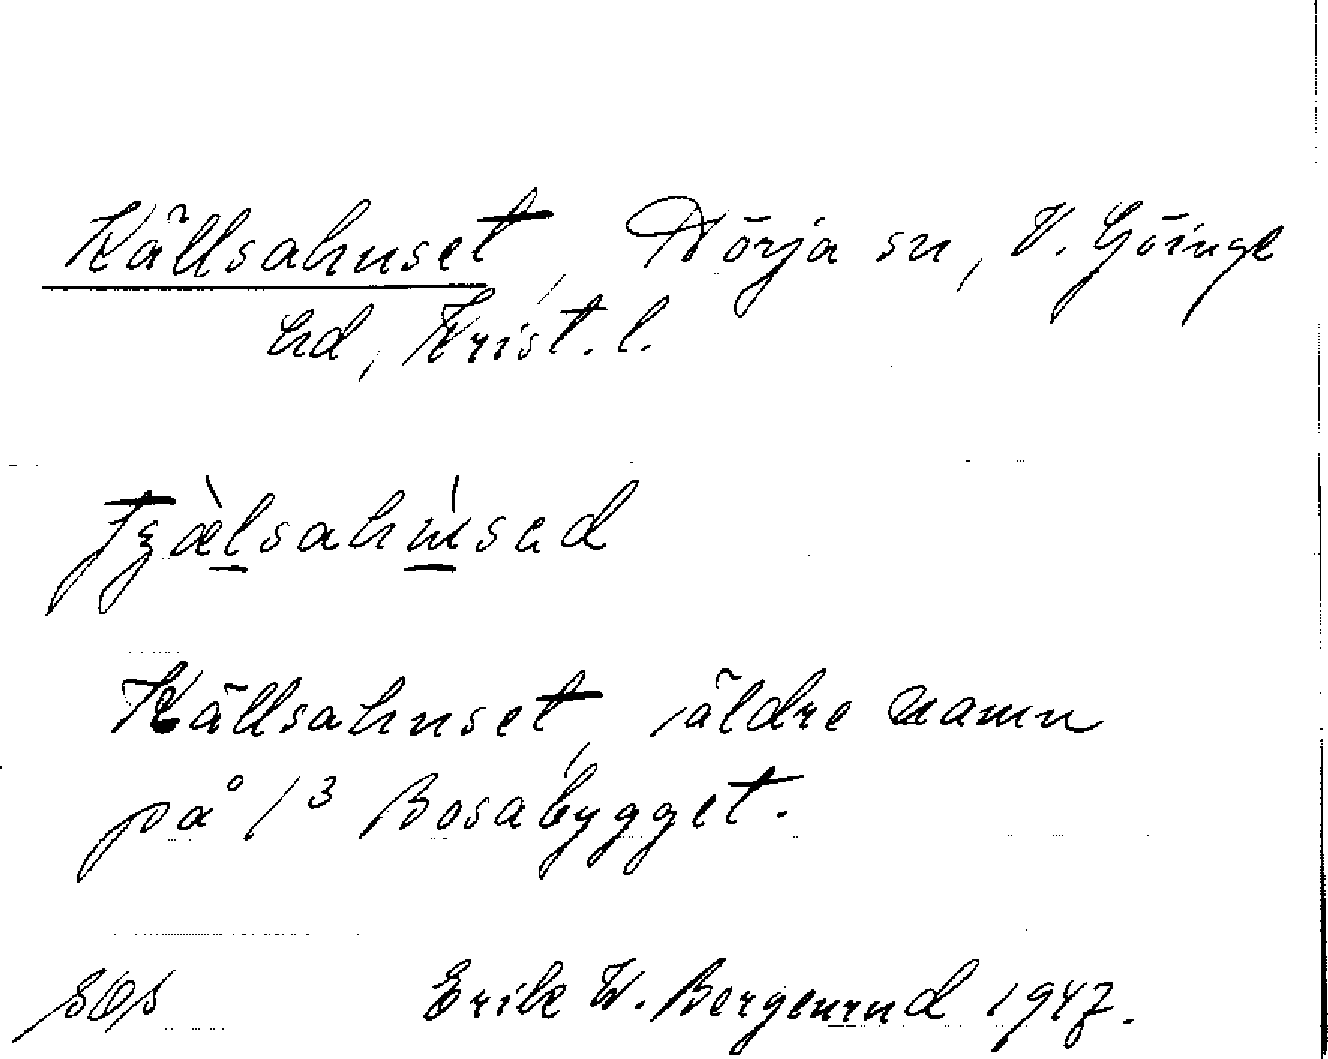 Källsahuset, Nörja sn, V. Göinge
hd, Krist. l.
Källsahuset, äldre namn
på 1 3 Bosabygget.
Erik W. Bergenrud 1947.